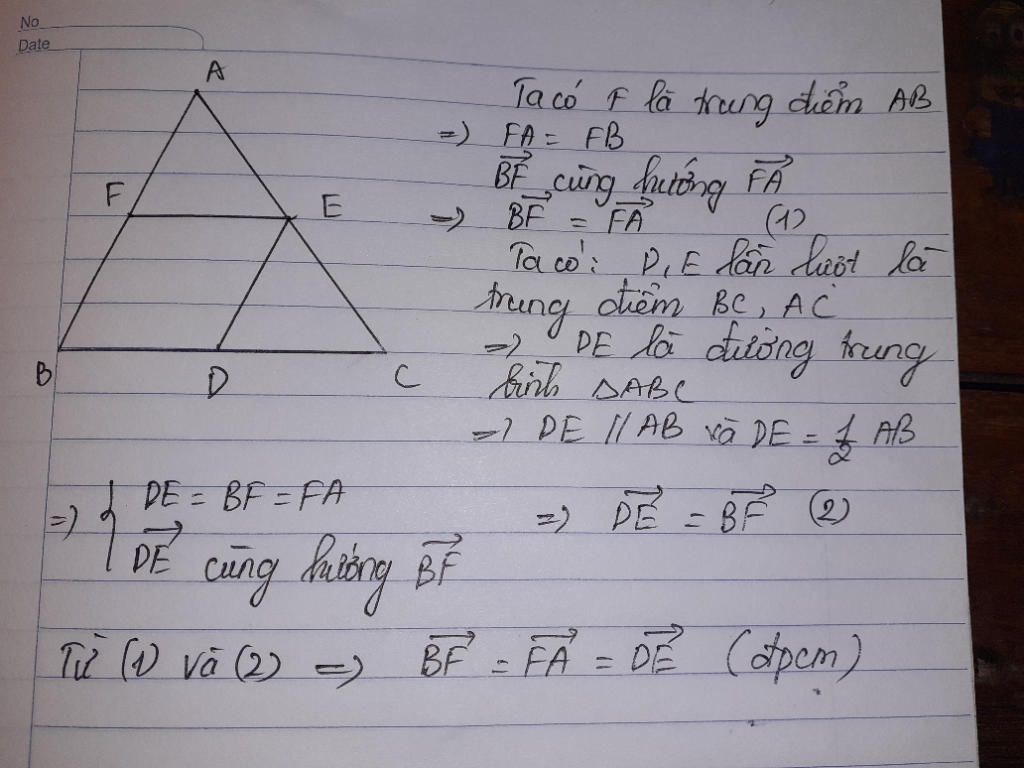 No
Date
A
F
E
B
D
C
Ta có F là trung điểm AB
=> FA = FB
$\overrightarrow{BF}$ cùng hướng $\overrightarrow{FA}$
=> $\overrightarrow{BF}$ = $\overrightarrow{FA}$ (1)
Ta có: D, E lần lượt là
trung điểm BC, AC
=> DE là đường trung
bình ΔABC
=> DE // AB và DE = $\frac{1}{2}$ AB
=> { DE = BF = FA
$\overrightarrow{DE}$ cùng hướng $\overrightarrow{BF}$
=> $\overrightarrow{DE}$ = $\overrightarrow{BF}$ (2)
Từ (1) và (2) => $\overrightarrow{BF}$ = $\overrightarrow{FA}$ = $\overrightarrow{DE}$ (đpcm)